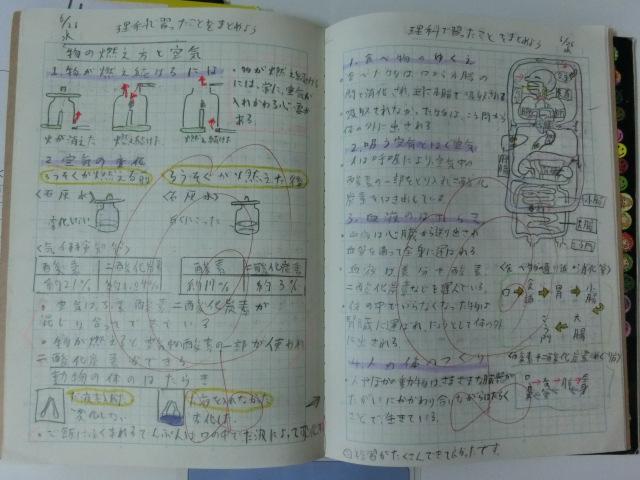 5/26
水
理科で習ったことをまとめよう
物の燃え方と空気
1.物が燃え続けるには
・物が燃え続ける
には、常に、空気が
入れかわる必要が
ある。
火が消えた 燃え続けた 燃え続けた
2.空気の変化
ろうそくが燃える前 ろうそくが燃えた後
〈石灰水〉 〈石灰水〉
変化しない 白くにごった
〈気体検知管〉
酸素 二酸化炭素 酸素 二酸化炭素
約21% 約17% 約3%
・空気は、ちっ素、酸素、二酸化炭素が
混じり合ってできている
・物が燃えると、空気中の酸素の一部が使われ
二酸化炭素ができる
動物の体のはたらき
変化した
・ご飯にふくまれるでんぷんは口の中でだ液によって変化
理科で習ったことをまとめよう
5/26
水
1.食べ物のゆくえ
食べた物は、口から
消化され、小腸で吸収される
吸収されなかった物は、こう門から
体の外に出される
2.吸う空気とはく空気
人は呼吸により、空気中の
酸素の一部をとり入れ二酸化
炭素をはき出している
3.血液のはたらき
・血液は心臓から送り出され
血管を通って全身に運ばれる
・血液は養分や酸素
二酸化炭素などを運んでいる。
・体の中でいらなくなった物は
腎臓に運ばれ、にょうとして体の外
に出される
小腸
大腸
こう門
口 食道 胃 小腸
大腸
こう門
4.人の体のつくり
・人やほかの動物は、さまざまな臓器が
たがいにかかわり合いながらはたらく
ことで、生きている。
学習がたくさんできてよかったです。